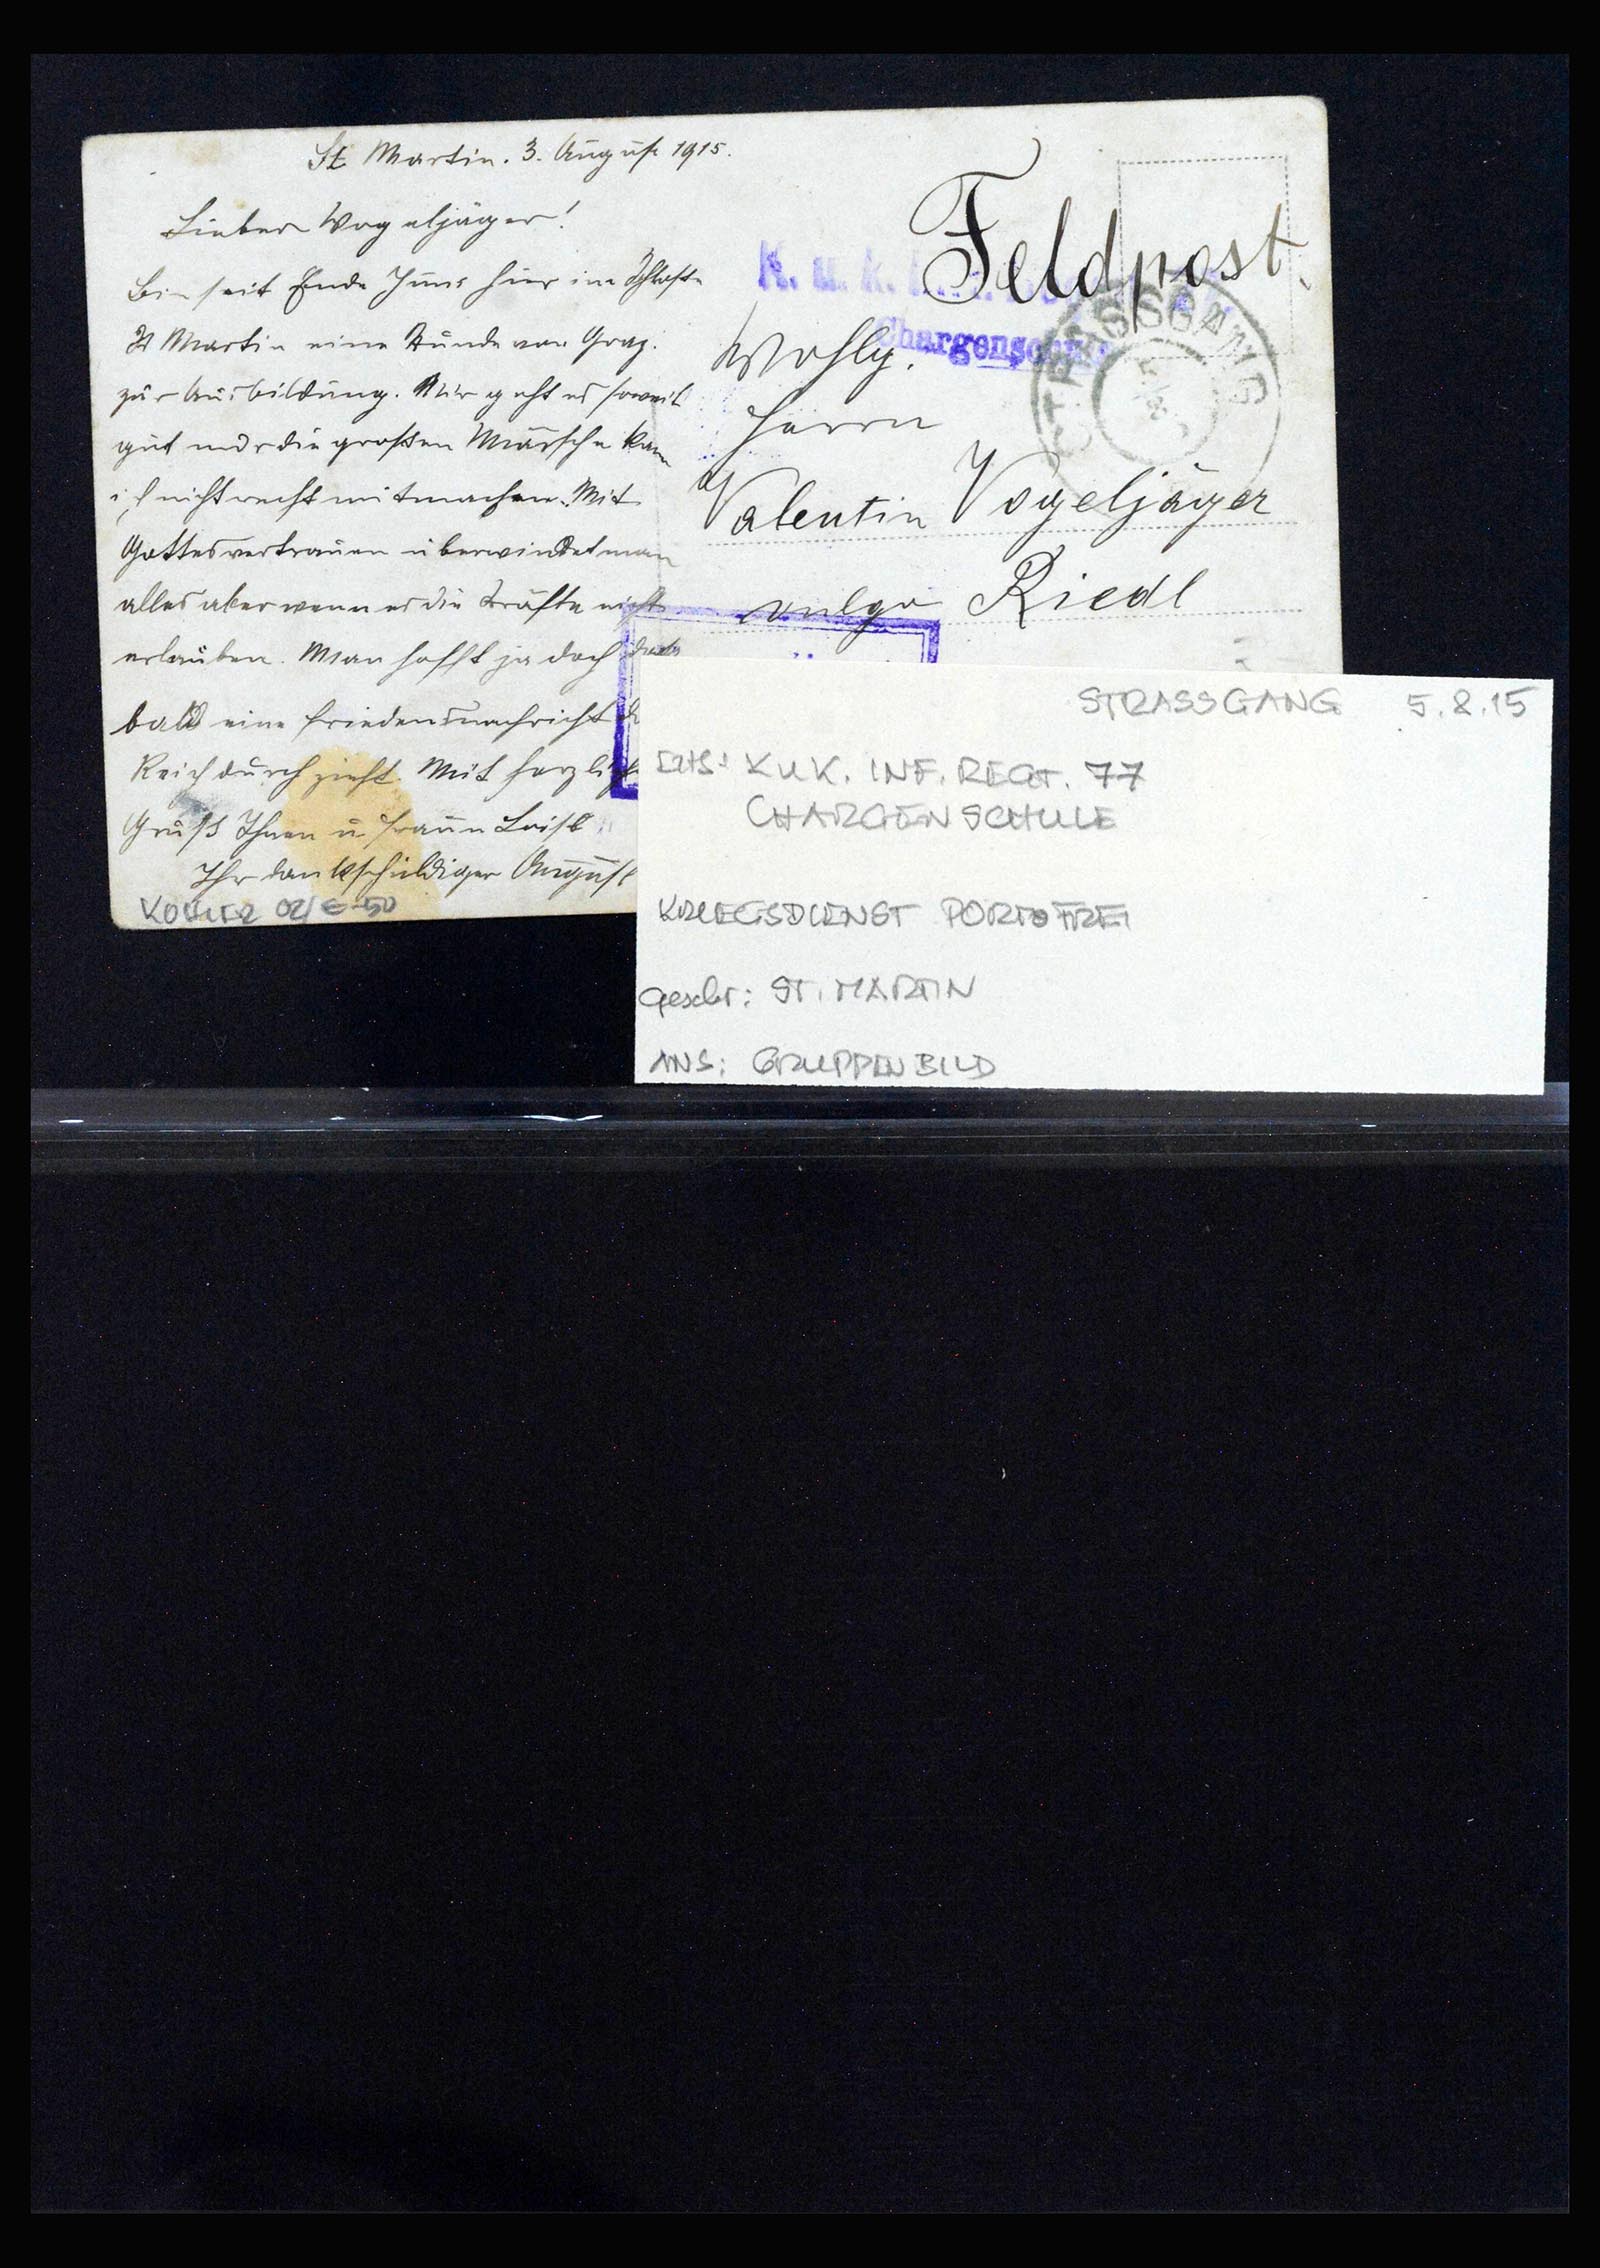 St Martin. 3. August 1915.
Lieber Vogeljäger!
Bin seit Ende Juni hier im Schloße
St Martin eine Stunde von Graz.
zur Ausbildung. Mir geht es soweit
gut nur die großen Märsche kann
ich nicht recht mitmachen. Mit
Gottesvertrauen überwindet man
alles aber wenn es die Kräfte nicht
erlauben. Man hofft ja doch daß
bald eine Friedensnachricht
Reich durchzieht. Mit
Gruß Ihnen u. Loisl
Ihr dankschuldiger August
KOHLER 02/€-50
Feldpost.
K. u. k.
Chargenschule
STRASSGANG
Wohlg.
Herrn
Valentin Vogeljäger
vulgo Riedl
STRASSGANG 5.8.15
K.U.K. INF. REGT. 77
CHARGENSCHULE
KRIEGSDIENST PORTOFREI
geschr: ST. MARTIN
ANS: GRUPPENBILD